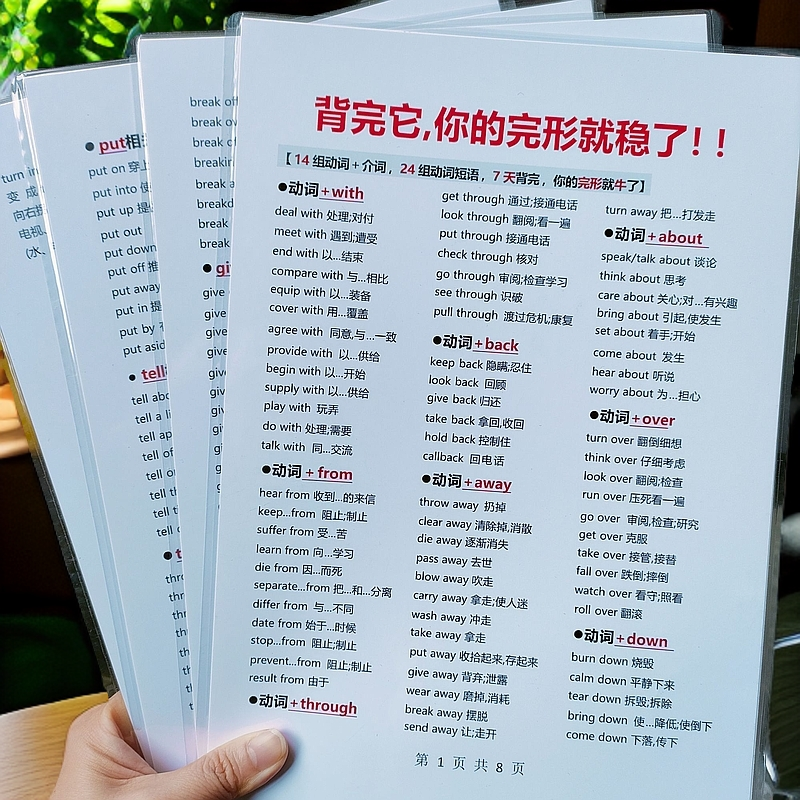 背完它,你的完形就稳了!!
【14组动词+介词，24组动词短语，7天背完，你的完形就牛了】
●动词+with
deal with 处理;对付
meet with 遇到;遭受
end with 以...结束
compare with 与...相比
equip with 以...装备
cover with 用...覆盖
agree with 同意,与...一致
provide with 以...供给
begin with 以...开始
supply with 以...供给
play with 玩弄
do with 处理;需要
talk with 同...交流
●动词+from
hear from 收到...的来信
keep...from 阻止;制止
suffer from 受...苦
learn from 向...学习
die from 因...而死
separate...from 把...和...分离
differ from 与...不同
date from 始于...时候
stop...from 阻止;制止
prevent...from 阻止;制止
result from 由于
●动词+through
get through 通过;接通电话
look through 翻阅;看一遍
put through 接通电话
check through 核对
go through 审阅;检查学习
see through 识破
pull through 渡过危机;康复
●动词+back
keep back 隐瞒;忍住
look back 回顾
give back 归还
take back 拿回,收回
hold back 控制住
callback 回电话
●动词+away
throw away 扔掉
clear away 清除掉,消散
die away 逐渐消失
pass away 去世
blow away 吹走
carry away 拿走;使人迷
wash away 冲走
take away 拿走
put away 收拾起来,存起来
give away 背弃;泄露
wear away 磨掉,消耗
break away 摆脱
send away 让;走开
turn away 把...打发走
●动词+about
speak/talk about 谈论
think about 思考
care about 关心;对...有兴趣
bring about 引起,使发生
set about 着手;开始
come about 发生
hear about 听说
worry about 为...担心
●动词+over
turn over 翻倒细想
think over 仔细考虑
look over 翻阅;检查
run over 压死看一遍
go over 审阅,检查;研究
get over 克服
take over 接管,接替
fall over 跌倒;摔倒
watch over 看守;照看
roll over 翻滚
●动词+down
burn down 烧毁
calm down 平静下来
tear down 拆毁;拆除
bring down 使...降低;使倒下
come down 下落,传下
第 1 页 共 8 页
break
break
break
break
break
break
give
give
give
give
give
give
give
●put相
put on 穿上
put into 使
put up 提
put out
put down
put off 推
put away
put in 提
put by
put asid
●tell
tell abo
tell a li
tell
tell
tell
tell
tell
turn in
变 成
向右
电视
(水